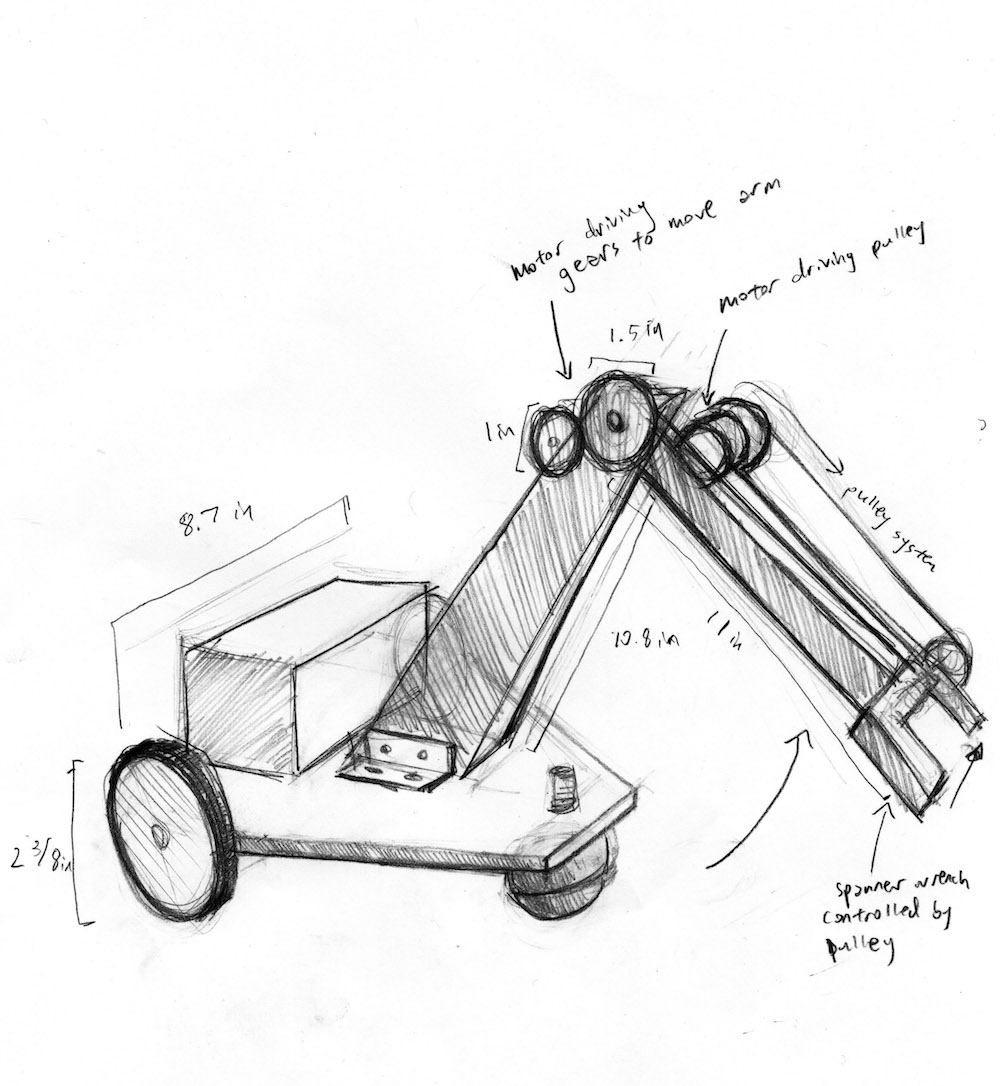 motor driving
gears to move arm
motor driving pulley
1.5 in
1 in
pulley system
8.7 in
10.8 in
11 in
2 3/8 in
spanner wrench
controlled by
pulley